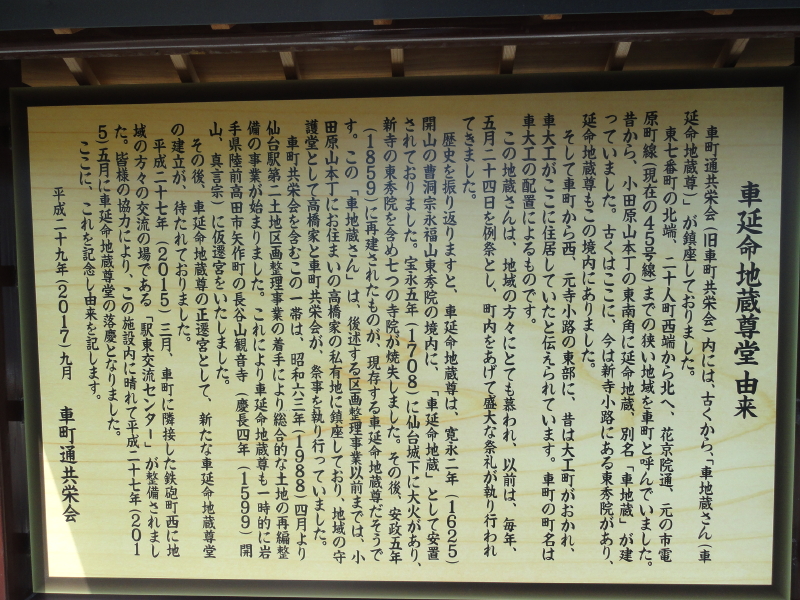 車延命地蔵尊堂由来
車町通共栄会(旧車町共栄会)内には、古くから、「車地蔵さん(車
延命地蔵尊)」が鎮座しておりました。
東七番町の北端、二十人町西端から北へ、花京院通、元の市電
原町線(現在の45号線)までの狭い地域を車町と呼んでいました。
昔から、小田原山本丁の東南角に延命地蔵、別名「車地蔵」が建
っていました。古くはここに、今は新寺小路にある東秀院があり、
延命地蔵尊もこの境内にありました。
そして車町から西、元寺小路の東部に、昔は大工町がおかれ、
車大工がここに住居していたと伝えられています。車町の町名は
車大工の配置によるものです。
この地蔵さんは、地域の方々にとても慕われ、以前は、毎年、
五月二十四日を例祭とし、町内をあげて盛大な祭礼が執り行われ
てきました。
歴史を振り返りますと、車延命地蔵尊は、寛永二年(1625)
開山の曹洞宗永福山東秀院の境内に、「車延命地蔵」として安置
されておりました。宝永五年(1708)に仙台城下に大火があり、
新寺の東秀院を含め七つの寺院が焼失しました。その後、安政五年
(1859)に再建されたものが、現存する車延命地蔵尊だそうで
す。この「車地蔵さん」は、後述する区画整理事業以前までは、小
田原山本丁にお住まいの高橋家の私有地に鎮座しており、地域の守
護堂として高橋家と車町共栄会が、祭事を執り行っていました。
車町共栄会を含むこの一帯は、昭和六三年(1988)四月より
仙台駅第二土地区画整理事業の着手により総合的な土地の再編整
備の事業が始まりました。これにより車延命地蔵尊も一時的に岩
手県陸前高田市矢作町の長谷山観音寺(慶長四年(1599)開
山、真言宗)に仮遷宮をいたしました。
その後、車延命地蔵尊の正遷宮として、新たな車延命地蔵尊堂
の建立が、待たれておりました。
平成二十七年(2015)三月、車町に隣接した鉄砲町西に地
域の方々の交流の場である「駅東交流センター」が整備されまし
た。皆様の協力により、この施設内に晴れて平成二十七年(201
5)五月に車延命地蔵尊堂の落慶となりました。
ここに、これを記念し由来を記します。
平成二十九年(2017)九月 車町通共栄会